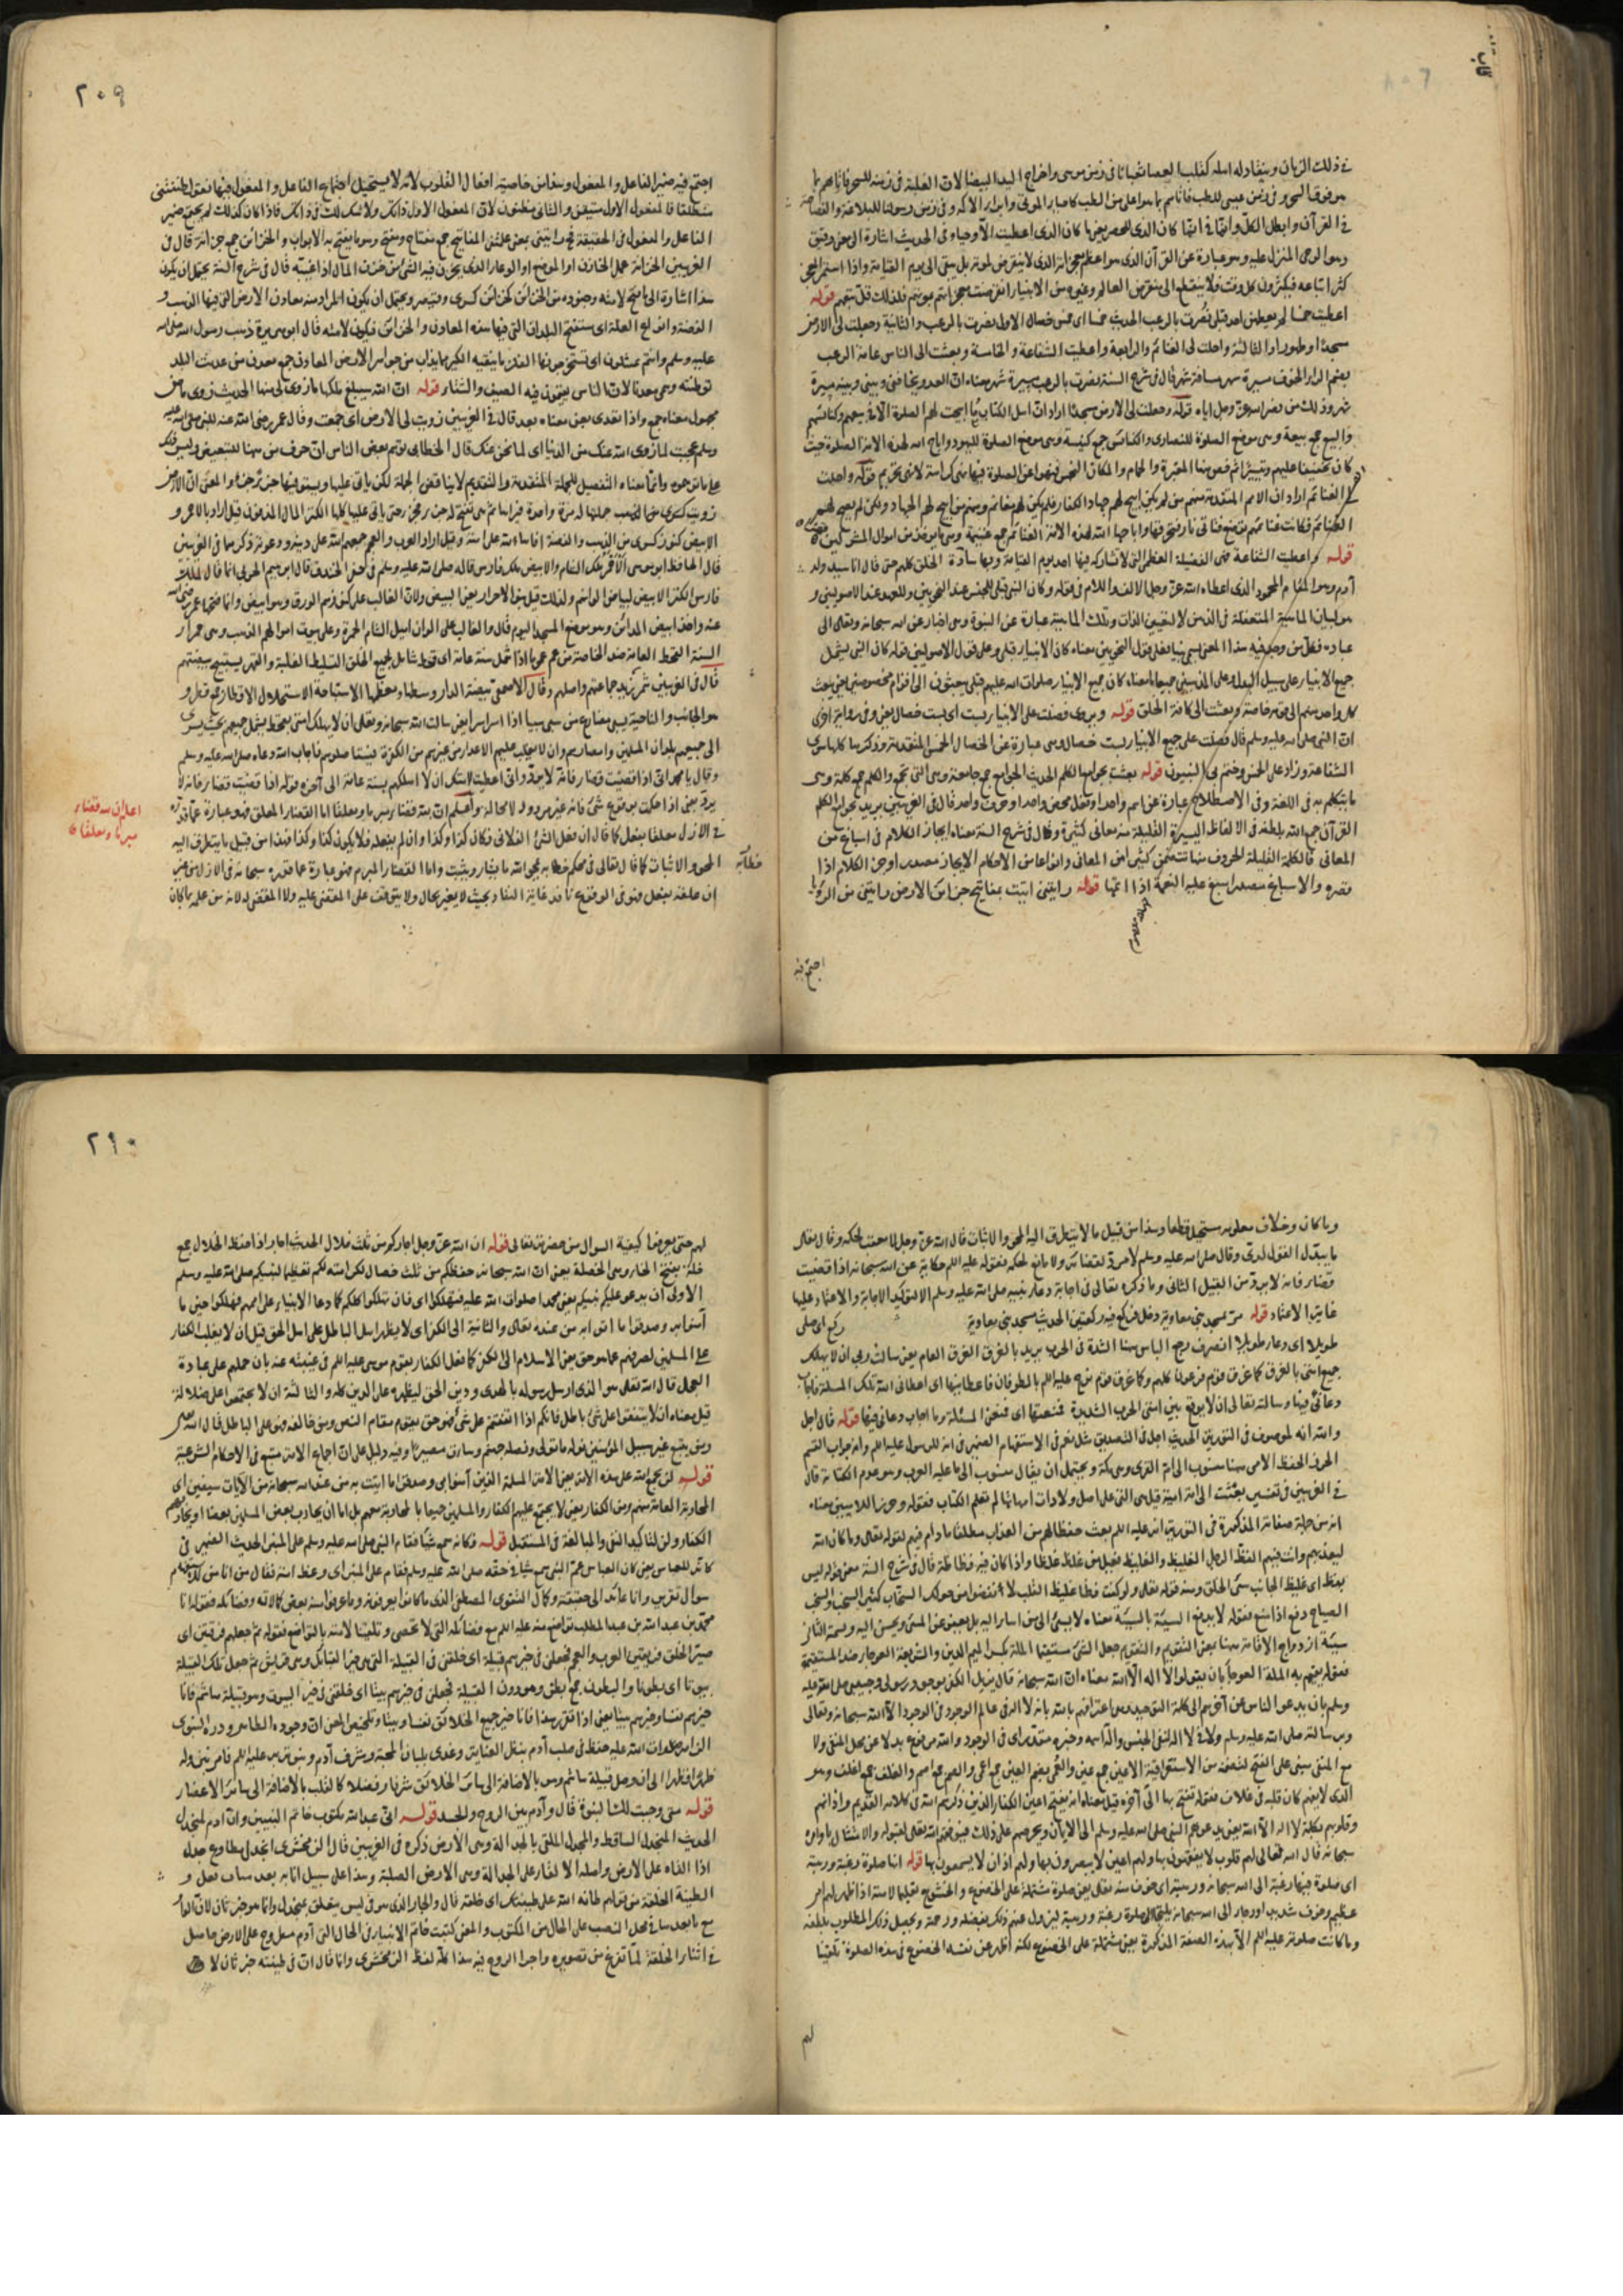 في ذلك الزمان وينقاد له اهله كقلب العصا ثعبانا في زمن موسى واخراج اليد البيضا لان الغلبة في زمنه للسحر فاتاهم بما
هو فوق السحر وفي زمن عيسى للطب فاتاهم بما هو اعلى من الطب كاحياء الموتى وابراء الاكمه وفي زمن رسولنا للبلاغة والفصاحة
القرآن وابطل الكل وانما في انما كان الذي للحصر يعني ما كان الذي اعطيت الا وحيا وفي الحديث اشارة الى معنى دقيق
وهو الوحي المنزل عليه وهو عبارة عن القرآن الذي هو اعظم معجزاته الذي لا ينقرض بموته بل يبقى الى يوم القيامة واذا استمر المعجز
كثر اتباعه فيكثرون كل وقت فلا ينقطع الى ينقرض العالم وغيره من الانبياء انقرضت معجزاتهم بموتهم فلذلك قل تبعهم قوله
اعطيت خمسا لم يعطهن احد قبلي نصرت بالرعب الحديث خمسا اي خمس خصال الاول نصرت بالرعب والثانية وجعلت لي الارض
مسجدا وطهورا والثالثة واحلت لي الغنائم والرابعة واعطيت الشفاعة والخامسة وبعثت الى الناس عامة الرعب
بضم الراء الخوف مسيرة شهر مسافة شهر قال في شرح السنة نصرت بالرعب مسيرة شهر معناه ان العدو يخافني وبيني وبينه مسيرة
شهر وذلك من نصر الله عز وجل اياه قوله وجعلت لي الارض مسجدا اراد ان اهل الكتاب ما ابيحت لهم الصلوة الا في بيعهم وكنائسهم
والبيع جمع بيعة وهي موضع الصلوة للنصارى والكنائس جمع كنيسة وهي موضع الصلوة لليهود واباح الله لهذه الامة الصلوة حيث
كان تخفيفا عليهم وتيسيرا ثم خص منها المقبرة والحمام والمكان النجس فنهوا عن الصلوة فيها نهي كراهة لا نهي تحريم قوله واحلت
لي الغنائم اراد ان الامم المتقدمة منهم من لم يكن ابيح لهم جهاد الكفار فلم يكن لهم مغانم ومنهم من ابيح لهم الجهاد ولكن لم يبح لهم
الغنائم فكانت غنائمهم توضع فتاتي نار فتحرقها واباحها الله لهذه الامة الغنائم جمع غنيمة وهي ما يؤخذ من اموال المشركين
قوله واعطيت الشفاعة هي الفضيلة العظمى التي لا يشاركه فيها احد يوم القيامة وبها ساد الخلق كلهم حتى قال انا سيد ولد
آدم وهو المقام المحمود الذي اعطاه الله عز وجل الالف واللام في قوله وكان النبي قبلي للجنس عند النحويين وللعهد عند الاصوليين و
هو لبيان الماهية المتعقلة في الذهن لا لتعيين الذات وتلك الماهية عبارة عن النبوة وهي اخبار عن الله سبحانه وتعالى الى
عباده فكل من وجد فيه هذا المعنى يسمى نبيا فعلى قول النحويين معناه كان الانبياء قبلي وعلى قول الاصوليين قوله كان النبي يشمل
جميع الانبياء على سبيل البدل وعلى المذهبين جميعا معناه كان جميع الانبياء صلوات الله عليهم قبلي يبعثون الى اقوام مخصوصين يعني يبعث
كل واحد منهم الى قومه خاصة وبعثت الى كافة الخلق قوله ويروى فضلت على الانبياء بست اي بست خصال يعني وفي رواية اخرى
ان النبي صلى الله عليه وسلم قال فضلت على جميع الانبياء بست خصال وهي عبارة عن الخصال الخمس المتقدمة وذكرها كلها سوى
الشفاعة وزاد على الخمس وختم بي النبيون قوله بعثت بجوامع الكلم الحديث الجوامع جمع جامعة وهي التي تجمع والكلم جمع كلمة وهي
ما يتكلم به في اللغة وفي الاصطلاح عبارة عن اسم واحد او فعل محض واحد او حرف واحد قال في الغريبين يريد بجوامع الكلم
القرآن جمع الله بلطفه في الالفاظ اليسيرة القليلة منه معاني كثيرة وقال في شرح السنة معناه ايجاز الكلام في اسباغ من
المعاني فالكلمة القليلة الحروف منها تتضمن كثيرا من المعاني وانواعا من الاحكام الايجاز مصدر اوجز الكلام اذا
قصره والاسباغ مصدر اسبغ عليه النعمة اذا اتمها قوله رايتني اتيت بمفاتيح خزائن الارض رايتني من الرؤيا
اجتمع فيه
٢٠٩
اجتمع فيه ضمير الفاعل والمفعول وهذا من خاصية افعال القلوب لانه لا يستحيل اجتماع الفاعل والمفعول فيها تقول ظننتني
منطلقا فالمفعول الاول متيقن والثاني مظنون لان المفعول الاول ذاتك ولا شك لك في ذاتك فاذا كان كذلك لم يجتمع ضمير
الفاعل والمفعول في الحقيقة المفاتيح جمع مفتاح ومفتح وهو ما يفتح به الابواب والخزائن جمع خزانة قال في
الغريبين الخزانة عمل الخازن او الموضع او الوعاء الذي يخزن فيه الشيء من خزن المال اذا غيبه قال في شرح السنة يحتمل ان يكون
هذا اشارة الى ما فتح لامته وجنوده من الخزائن كخزائن كسرى وقيصر ويحتمل ان يكون المراد منه معادن الارض التي فيها الذهب و
الفضة وانواع الفلز اي ستفتح البلدان التي فيها هذه المعادن والخزائن فيكون لامته قال ابو هريرة ذهب رسول الله صلى الله
عليه وسلم وانتم تنتثلونها اي تستخرجونها الفلز ما ينقيه الكير مما يذاب من جواهر الارض المعادن جمع معدن من عدنت البلد
توطنته وسمي معدنا لان الناس يقيمون فيه الصيف والشتاء قوله ان الله سيبلغ ملكها ما زوي لي منها الحديث زوي ماض
مجهول معناه جمع واذا تعدى بعن معناه بعد قال في الغريبين زويت لي الارض اي جمعت وقال عمر رضي الله عنه للنبي صلى الله عليه
وسلم عجبت لما زوى الله عنك من الدنيا اي لما نحى عنك قال الخطابي يتوهم بعض الناس ان حرف من ههنا للتبعيض وليس ذلك
على ما توهموه وانما معناه التفصيل للجملة المتقدمة والتفصيل لا يناقض الجملة لكن ياتي عليها ويستوفيها جزءا جزءا والمعنى ان الارض
زويت كلها جملتها له مرة واحدة فرآها ثم هي تفتح له جزء فجزء حتى ياتي عليها كلها الكنز المال المدفون قيل اراد بالاحمر و
الابيض كنوز كسرى من الذهب والفضة افاءها الله على امته وقيل اراد العرب والعجم جمعهم الله على دينه ودعوته ذكرهما في الغريبين
قال الحافظ ابو موسى الاحمر ملك الشام والابيض ملك فارس قاله صلى الله عليه وسلم في حفر الخندق قال ابراهيم الحربي انما قال لملك
فارس الكنز الابيض لبياض الوانهم ولذلك قيل بنو الاحرار يعني البيض ولان الغالب على كنوزهم الورق وهو ابيض وانما فتحها عمر رضي الله
عنه واخذ ابيض المدائن وهو موضع المسجد اليوم قال والغالب على الوان اهل الشام الحمرة وعلى بيوت اموالهم الذهب وهي حمراء
السنة القحط العامة ضد الخاصة من عم عموما اذا شمل سنة عامة اي قحط شامل بجميع الخلق التسليط الغلبة والقهر يستبيح بيضتهم
قال في الغريبين شمر يريد جماعتهم واصلهم وقال الاصمعي بيضة الدار وسطها ومعظمها الاستباحة الاستحلال الاقطار جمع قطر و
هو الجانب والناحية يسبي مضارع من سبى سبيا اذا اسر اسرا يعني سالت الله سبحانه وتعالى ان لا يهلك امتي بقحط يشمل جميعهم بحيث يسري
الى جميعهم بلدان المسلمين وامصارهم وان لا يغلب عليهم الاعداء من غيرهم من الكفرة فيستاصلوهم فاجاب الله دعاءه صلى الله عليه وسلم
وقال يا محمد اني اذا قضيت قضاء فانه لا يرد واني اعطيت لامتك ان لا اهلكهم بسنة عامة الى آخره قوله اذا قضيت قضاء فانه لا
يرد يعني اذا حكمت بوقوع شيء فانه غير مردود لا محالة واعلم ان لله قضاء مبرما ومعلقا اما القضاء المعلق فهو عبارة عما قدره
في الازل معلقا بفعل كما قال ان فعل الشيء الفلاني فكان كذا وكذا وان لم يفعله فلا يكون كذا وكذا فهذا من قبيل ما يتطرق اليه
المحو والاثبات كما قال تعالى في محكم خطابه يمحو الله ما يشاء ويثبت واما القضاء المبرم فهو عبارة عما قدره سبحانه في الازل من غير
ان علقه بفعل فهو في الوقوع نافذ غاية النفاذ بحيث لا يغير بحال ولا يتوقف على المقضي عليه ولا المقضي له لانه من علمه بما كان
اعلم ان لله قضاء
مبرما ومعلقا
وما كان وخلاف معلومه مستحيل قطعا وهذا من قبيل ما لا يتطرق اليه المحو والاثبات قال الله عز وجل لا معقب لحكمه وقال تعالى
ما يبدل القول لدي وقال صلى الله عليه وسلم لا مرد لقضائه ولا مانع لحكمه فقوله عليه السلام حكاية عن الله سبحانه اذا قضيت
قضاء فانه لا يرد من القبيل الثاني وما ذكره تعالى في اجابة دعاء نبيه صلى الله عليه وسلم الاجابة والاعتماد عليها
غاية الاعتماد قوله مر بمسجد بني معاوية دخل فركع فيه ركعتين الحديث مسجد بني معاوية ركع اي صلى
طويلا اي دعاء طويلا انصرف رجع الباس ههنا الشدة في الحرب يريد بالغرق الغرق العام يعني سالت ربي ان لا يهلك
جميع امتي بالغرق كما غرق قوم فرعون كلهم وكما غرق قوم نوح عليه السلام بالطوفان فاعطانيها اي اعطاني الله تلك المسئلة فاجاب
دعائي فيها وسالته تعالى ان لا يوقع بين امتي الحرب الشديدة فمنعنيها اي فمنعني المسئلة وما اجاب دعائي فيها قوله قال اجل
والله انه لموصوف في التورية الحديث اجل في التصديق مثل نعم في الاستفهام الضمير في انه للرسول عليه السلام وانه جواب القسم
الحرز الحفظ الامي ههنا منسوب الى ام القرى وهي مكة ويحتمل ان يقال منسوب الى ما عليه العرب وهو عدم الكتابة قال
في الغريبين في تفسير بعثت الى امة امية قيل هي التي على اصل ولادات امهاتها لم تتعلم الكتاب فقوله وحرزا للاميين معناه
انه من جملة صفاته المذكورة في التورية انه عليه السلام بعث حفظا لهم من العذاب مطلقا ما دام فيهم لقوله تعالى وما كان الله
ليعذبهم وانت فيهم الفظ الرجل الغليظ والغليظ فعيل من غلظ غلظا واذا كان فيه فظاظة قال في شرح السنة معنى قوله ليس
بفظ اي غليظ الجانب سيئ الخلق ومنه قوله تعالى ولو كنت فظا غليظ القلب لانفضوا من حولك السخاب كثير السخب والسخب
الصياح دفع اذا منع فقوله لا يدفع السيئة بالسيئة معناه لا يسيء الى من اساء اليه بل يعفو عن المسيء ويحسن اليه وسميت الثاني
سيئة ازدواج الاقامة ههنا بمعنى التقويم والتقويم جعل الشيء مستقيما الملة بكسر الميم الدين والشريعة العوجاء ضد المستقيمة
فقوله يقيم به الملة العوجاء بان يقولوا لا اله الا الله معناه ان الله سبحانه قال يزيل الكفر بوجود رسولي وحبيبي صلى الله عليه
وسلم بان يدعوا الناس عن آخرهم الى كلمة التوحيد وهي اعترافهم بالله بانه لا اله في عالم الوجود في الوجود الا الله سبحانه وتعالى
وبرسالته صلى الله عليه وسلم ولا في لا اله لنفي الجنس واله اسمه وخبره مقدر اي في الوجود والله مرفوع بدلا عن محل المنفي ولا
مع المنفي مبني على الفتح لتضمنه من الاستغراقية الاعين جمع عين والعمي بضم العين جمع اعمى والصم جمع اصم والغلف جمع اغلف وهو
الذي لا يفهم كان قلبه في غلاف فقوله تفتح بها الى آخره قيل معناه انه يفتح اعين الكفار الذين ذكرهم الله في كلامه القديم وآذانهم
وقلوبهم بكلمة لا اله الا الله يعني يدعوهم النبي صلى الله عليه وسلم الى الايمان ويحرضهم على ذلك فيوفقهم الله تعالى لقبوله والامتثال باوامره
سبحانه قال الله تعالى لهم قلوب لا يفقهون بها ولهم اعين لا يبصرون بها ولهم آذان لا يسمعون بها قوله انها صلوة رغبة ورهبة
اي صلوة فيها رغبة الى الله سبحانه ورهبة اي خوف منه تعالى يعني صلوة مشتملة على الخضوع والخشوع تعليما لامته اذا ظهر لهم امر
عظيم وخوف شديد او رجاء الى الله سبحانه يلتجئوا الى صلوة رغبة ورهبة ليزول عنهم ذلك بفضله ورحمته ويحصل ذلك المطلوب بلطفه
وما كانت صلوته عليه السلام الا بهذه الصفة المذكورة يعني مشتملة على الخضوع لكنه اظهر عن نفسه الخضوع في هذه الصلوة تلقينا
لهم
٢١٠
لهم حتى يعرفوا كيفية السؤال من حضرته تعالى قوله ان الله عز وجل اجاركم من ثلث خلال الحديث اجار اذا حفظ الخلال جمع
خلة بفتح الخاء وهي الخصلة يعني ان الله سبحانه حفظكم من ثلث خصال لكرامته لكم تعظيما لنبيكم صلى الله عليه وسلم
الاولى ان يدعو عليكم نبيكم يعني محمدا صلوات الله عليه فتهلكوا اي فان تهلكوا كلكم كما دعا الانبياء على اممهم فهلكوا حين ما
آمنوا به وصدقوا ما اتى به من عنده تعالى والثانية الى الكفر اي لا يظهر اهل الباطل على اهل الحق قيل ان لا يغلب الكفار
على المسلمين لصرفهم عما هو حق يعني الاسلام الى الكفر كما فعل الكفار بقوم موسى عليه السلام في غيبته عنه بان حملهم على عبادة
العجل قال الله تعالى هو الذي ارسل رسوله بالهدى ودين الحق ليظهره على الدين كله والثالثة ان لا يجتمعوا على ضلالة
قيل معناه ان لا يتفقوا على شيء باطل فانكم اذا اتفقتم على شيء فهو حق يقوم مقام النص ومن خالفه فهو على الباطل قال الله تعالى
ومن يتبع غير سبيل المؤمنين نوله ما تولى ونصله جهنم وساءت مصيرا وفيه دليل على ان اجماع الامة متبع في الاحكام الشرعية
قوله لن يجمع الله على هذه الامة يعني الامة المسلمة الذين آمنوا بي وصدقوا ما اتيت به من عند الله سبحانه من الآيات سيفين اي
المحاربة العامة منهم ومن الكفار يعني لا يجتمع عليهم الكفار والمسلمين جميعا بالمحاربة معهم بل اما ان يحارب بعض المسلمين بعضا او يحاربهم
الكفار ولن لتاكيد النفي والمبالغة في المستقبل قوله فكانه سمع شيئا فقام النبي صلى الله عليه وسلم على المنبر الحديث الضمير في
كانه للعباس يعني كان العباس عم النبي سمع شيئا في حقه صلى الله عليه وسلم فقام على المنبر اي وعظ امته فقال من انا من للاستفهام
سؤال تقرير وانا عائد الى حقيقته وكمال النبوي المصطفى الذي ما كانوا يعرفونه وما عرفوا منه بعض كمالاته وفضائله فقوله انا
محمد بن عبد الله بن عبد المطلب تواضع منه عليه السلام مع فضائله التي لا تحصى وتلقينا لامته بالتواضع فقوله ثم جعلهم فرقتين اي
صير الخلق فرقتين العرب والعجم فجعلني في خيرهم قبيلة اي خلقني في القبيلة التي هي خير القبائل وهي قريش ثم جعل تلك القبيلة
بيوتا اي بطونا والبطون جمع بطن وهو دون القبيلة فجعلني في خيرهم بيتا اي خلقني في خير البيوت وهو قبيلة هاشم فانا
خيرهم نفسا وخيرهم بيتا يعني اذا تقرر هذا فانا خير جميع الخلائق نفسا وبيتا وتلخيص المعنى ان وجوده الطاهر ودره النبوي
الزاهر صلوات الله عليه حفظ في صلب آدم بنظر العناية وغذي بلبان المحبة وشرف آدم بنوته عليه السلام فامر بتنزله
ظهرا فظهرا الى ان وصل قبيلة هاشم وهي بالاضافة الى سائر الخلائق شرفا وفضلا كالقلب بالاضافة الى سائر الاعضاء
قوله متى وجبت لك النبوة قال وآدم بين الروح والجسد قوله اني عبد الله مكتوب خاتم النبيين وان آدم لمنجدل
الحديث المنجدل الساقط والمجدل الملقى بالجدالة وهي الارض ذكره في الغريبين قال الزمخشري انجدل مطاوع جدله
اذا القاه على الارض واصله الالقاء على الجدالة وهي الارض الصلبة وهذا على سبيل انابة بعد مناب فعل و
الطينة الخلقة من قولهم طانه الله على طينتك اي خلقه قال والجار الذي هو في ليس يتعلق بمنجدل وانما هو خبر ثان لان الواو
مع ما بعدها في محل النصب على الحال من المكتوب والمعنى كتبت خاتم الانبياء في الحال التي آدم مطروح على الارض حاصل
في اثناء الخلقة لما تفرغ من تصويره واجراء الروح فيه هذا كله لفظ الزمخشري وانما قال ان في طينته خبر ثان لا